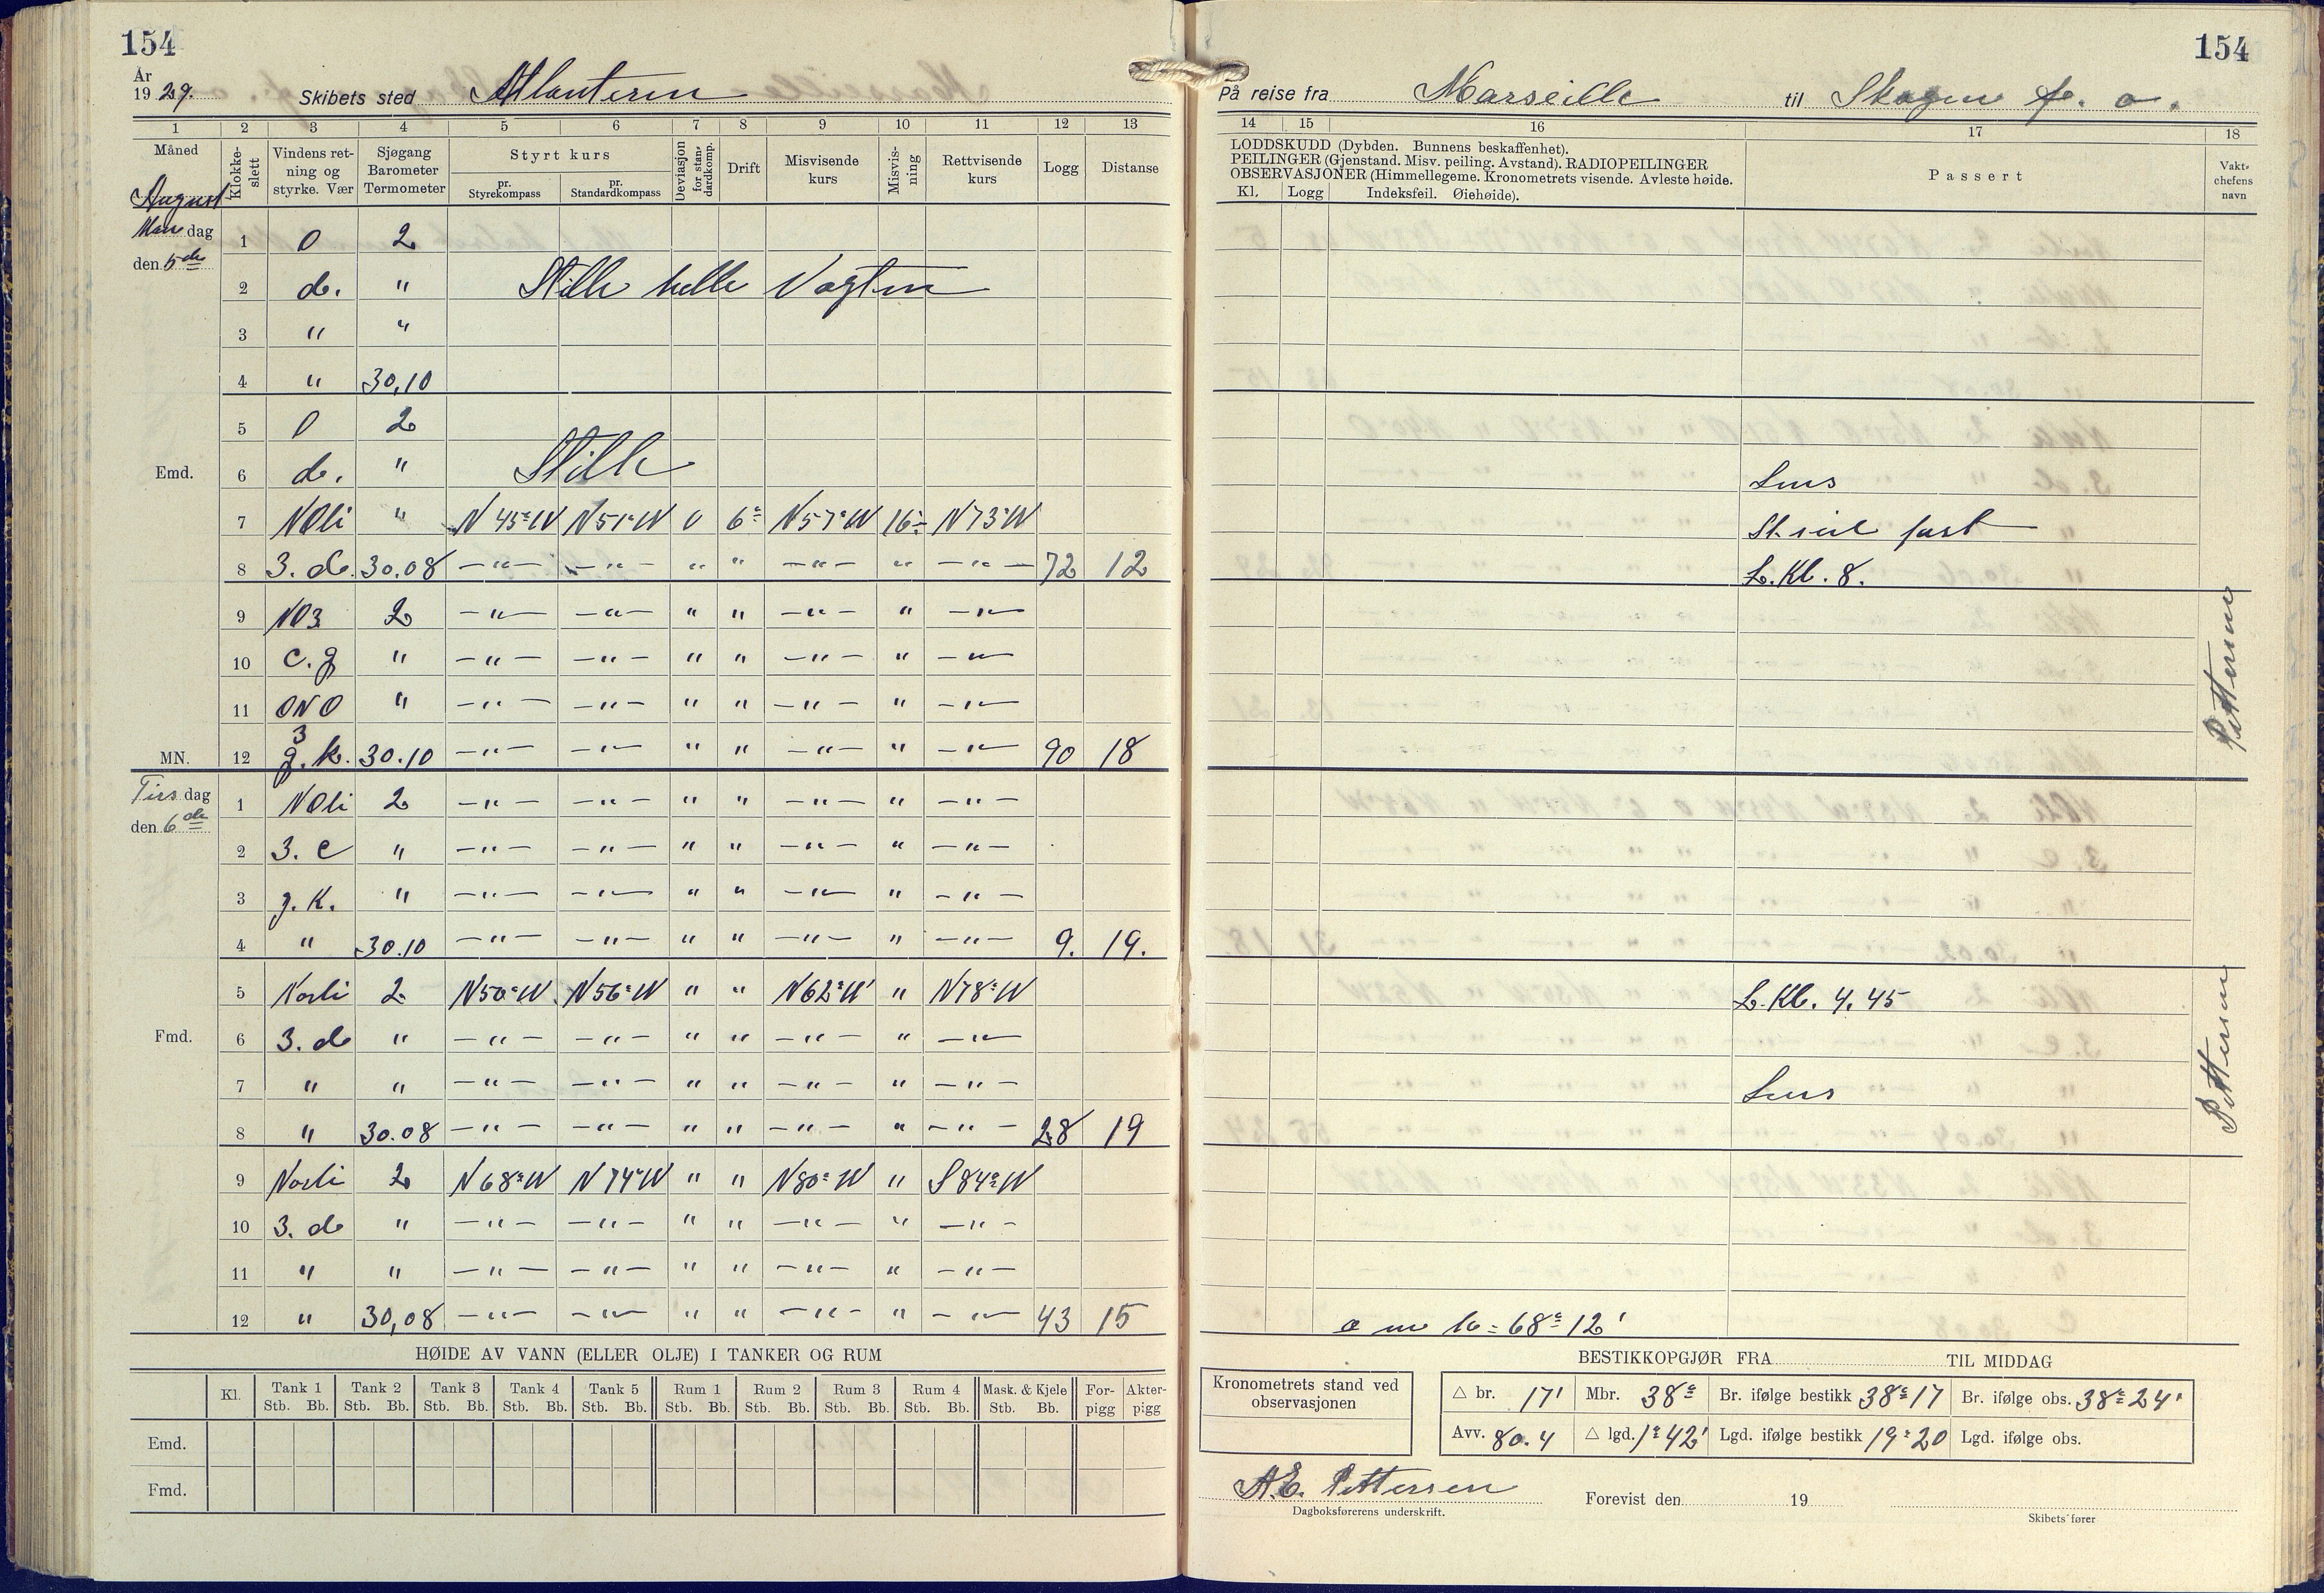 154
154
År
1929. Skibets sted Atlanteren
På reise fra Marseille til Skagen f. o.
1 2 3 4 5 6 7 8 9 10 11 12 13
14 15 16 17 18
Måned Klokkeslett Vindens retning og styrke. Vær Sjøgang Barometer Termometer Styrt kurs pr. Styrekompass pr. Standardkompass Deviasjon for standardkomp. Drift Misvisende kurs Misvisning Rettvisende kurs Logg Distanse
LODDSKUDD (Dybden. Bunnens beskaffenhet).
PEILINGER (Gjenstand. Misv. peiling. Avstand). RADIOPEILINGER
OBSERVASJONER (Himmellegeme. Kronometrets visende. Avleste høide.
Kl. Logg Indeksfeil. Øiehøide).
Passert
Vaktchefens navn
August
Man dag 1 0 2
den 5de 2 d. " Stille hele Vagten
3 " "
4 " 30,10
5 0 2
Emd. 6 d. " Stille Lens
7 NOli " N45°W N51°W 0 6° N57°W 16° N73°W St. seil fast
8 3. d. 30.08 –"– –"– " " –"– " –"– 72 12 L. Kl. 8.
9 NO3 2 –"– –"– " " –"– " –"–
10 c. g " –"– –"– " " –"– " –"–
11 ONO " –"– –"– " " –"– " –"–
MN. 12 3 g. k. 30.10 –"– –"– " " –"– " –"– 90 18
Pettersen
Tirs dag 1 NOli 2 –"– –"– " " –"– " –"–
den 6de 2 3. c " –"– –"– " " –"– " –"–
3 g. k. " –"– –"– " " –"– " –"–
4 " 30.10 –"– –"– " " –"– " –"– 9. 19.
5 Nosli 2 N50°W N56°W " " N62°W " N78°W L. Kl. 4.45
Fmd. 6 3. d " –"– –"– " " –"– " –"–
7 " " –"– –"– " " –"– " –"– Lens
8 " 30.08 –"– –"– " " –"– " –"– 28 19
Pettersen
9 Nosli 2 N68°W N74°W " " N80°W " S84°W
10 3. d " –"– –"– " " –"– " –"–
11 " " –"– –"– " " –"– " –"–
12 " 30,08 –"– –"– " " –"– " –"– 43 15 68° 12'
HØIDE AV VANN (ELLER OLJE) I TANKER OG RUM
Kl. Tank 1 Tank 2 Tank 3 Tank 4 Tank 5 Rum 1 Rum 2 Rum 3 Rum 4 Mask. & Kjele Forpigg Akterpigg
Stb. Bb. Stb. Bb. Stb. Bb. Stb. Bb. Stb. Bb. Stb. Bb. Stb. Bb. Stb. Bb. Stb. Bb. Stb. Bb.
Emd.
Fmd.
BESTIKKOPGJØR FRA TIL MIDDAG
Kronometrets stand ved observasjonen
△ br. 17' Mbr. 38° Br. ifølge bestikk 38° 17 Br. ifølge obs. 38° 24'
Avv. 80.4 △ lgd. 1° 42' Lgd. ifølge bestikk 19° 20 Lgd. ifølge obs.
A.E. Pettersen Forevist den 19
Dagboksførerens underskrift. Skibets fører